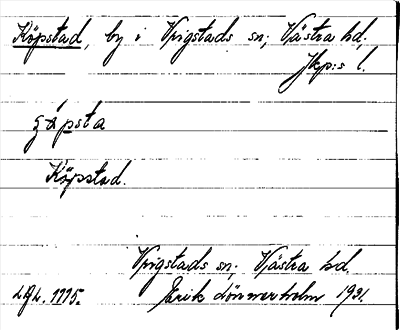 Köpstad, by i Vrigstads sn; Västra hd;
Jkp:s l.
Köpstad.
Vrigstads sn; Västra hd.
Erik Lönnerholm 1931.